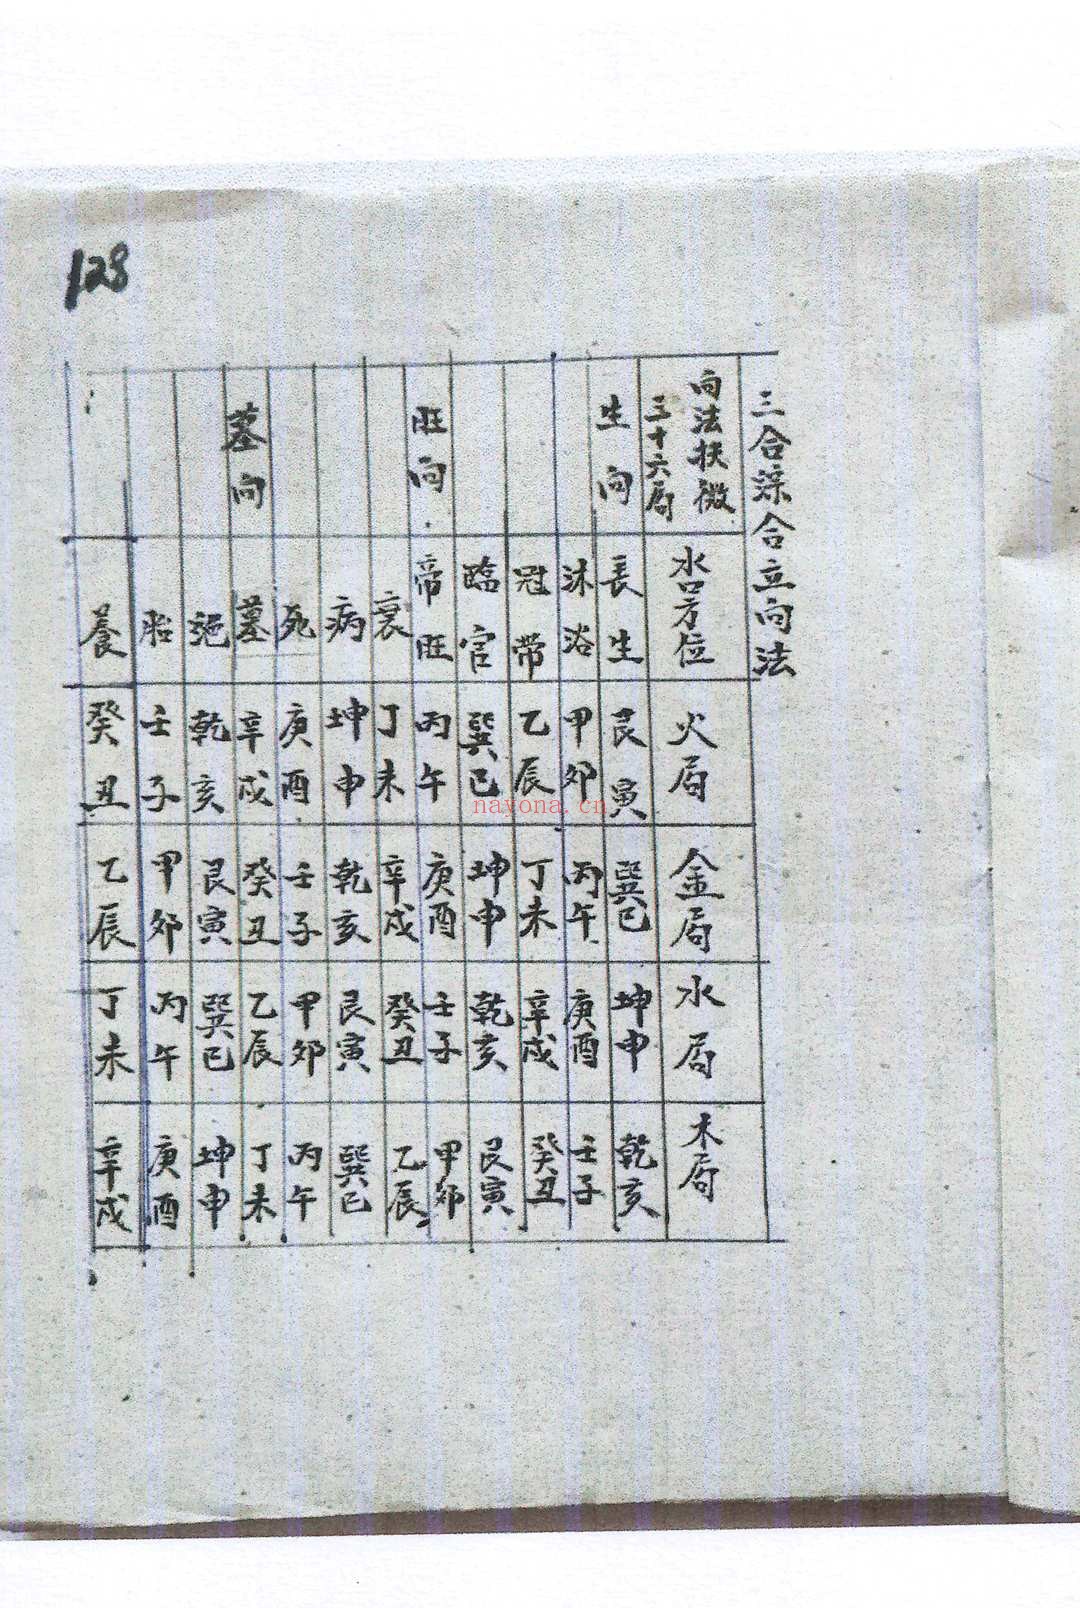 128
三合综合立向法
向法扶微
三十六局
水口方位 火局 金局 水局 木局
生向 長生 艮寅 巽巳 坤申 乾亥
沐浴 甲卯 丙午 庚酉 壬子
冠带 乙辰 丁未 辛戌 癸丑
臨官 巽巳 坤申 乾亥 艮寅
旺向 帝旺 丙午 庚酉 壬子 甲卯
衰 丁未 辛戌 癸丑 乙辰
病 坤申 乾亥 艮寅 巽巳
死 庚酉 壬子 甲卯 丙午
墓向 墓 辛戌 癸丑 乙辰 丁未
绝 乾亥 艮寅 巽巳 坤申
胎 壬子 甲卯 丙午 庚酉
养 癸丑 乙辰 丁未 辛戌
nayona.cn